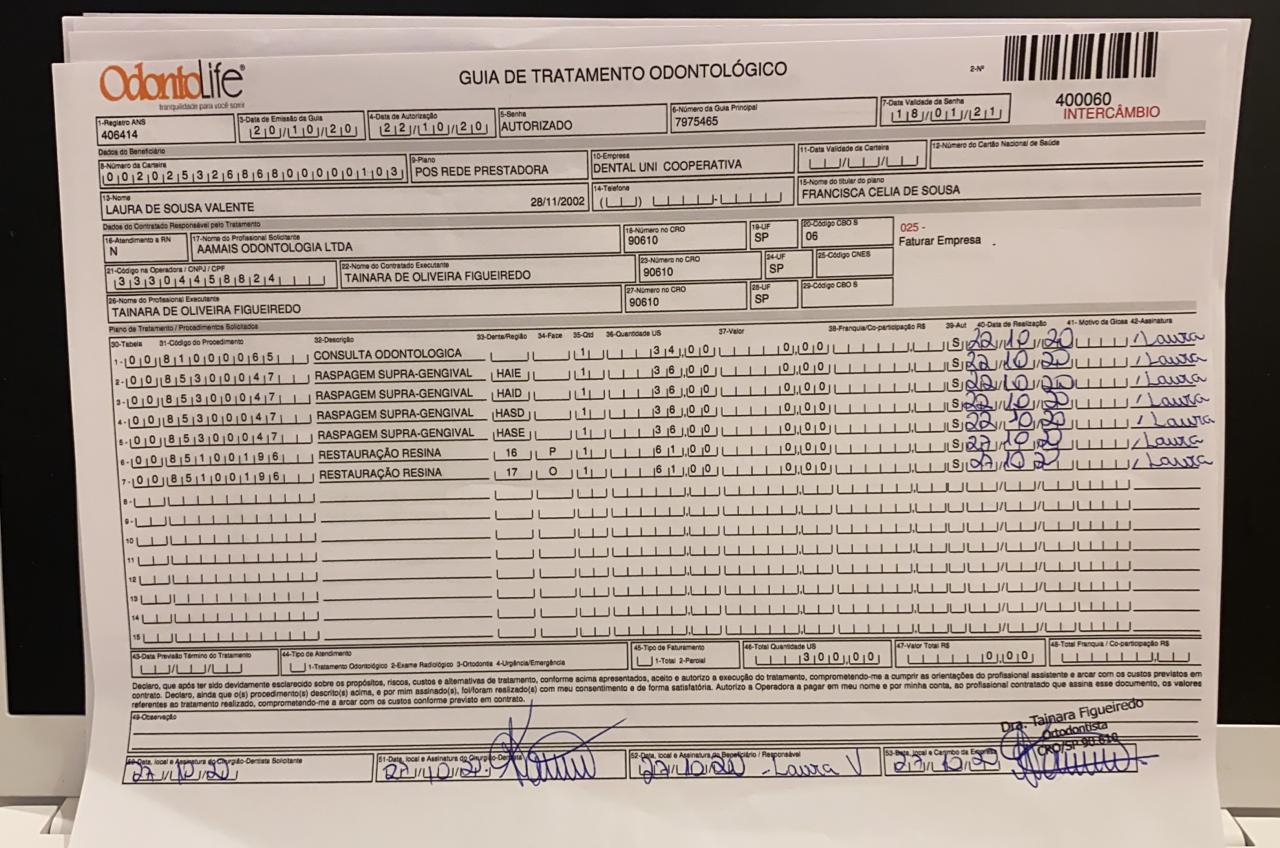 OdontoLife®
tranquilidade para você sorrir
GUIA DE TRATAMENTO ODONTOLÓGICO
2-Nº
400060
INTERCÂMBIO
1-Registro ANS 3-Data de Emissão da Guia 4-Data de Autorização 5-Senha 6-Número da Guia Principal 7-Data Validade da Senha
406414 20/10/20 22/10/20 AUTORIZADO 7975465 18/01/21
Dados do Beneficiário
8-Número da Carteira 9-Plano 10-Empresa 11-Data Validade da Carteira 12-Número do Cartão Nacional de Saúde
00202532686800000103 POS REDE PRESTADORA DENTAL UNI COOPERATIVA
13-Nome 14-Telefone 15-Nome do titular do plano
LAURA DE SOUSA VALENTE 28/11/2002 FRANCISCA CELIA DE SOUSA
Dados do Contratado Responsável pelo Tratamento
16-Atendimento a RN 17-Nome do Profissional Solicitante 18-Número no CRO 19-UF 20-Código CBO S
N AAMAIS ODONTOLOGIA LTDA 90610 SP 06
025 -
Faturar Empresa .
21-Código na Operadora / CNPJ / CPF 22-Nome do Contratado Executante 23-Número no CRO 24-UF 25-Código CNES
33304458824 TAINARA DE OLIVEIRA FIGUEIREDO 90610 SP
26-Nome do Profissional Executante 27-Número no CRO 28-UF 29-Código CBO S
TAINARA DE OLIVEIRA FIGUEIREDO 90610 SP
Plano de Tratamento / Procedimentos Solicitados
30-Tabela 31-Código do Procedimento 32-Descrição 33-Dente/Região 34-Face 35-Qtd 36-Quantidade US 37-Valor 38-Franquia/Co-participação R$ 39-Aut 40-Data de Realização 41- Motivo da Glosa 42-Assinatura
1- 00 81000065 CONSULTA ODONTOLOGICA 1 34,00 0,00 S 22/10/20 Laura
2- 00 85300047 RASPAGEM SUPRA-GENGIVAL HAIE 1 36,00 0,00 S 22/10/20 Laura
3- 00 85300047 RASPAGEM SUPRA-GENGIVAL HAID 1 36,00 0,00 S 22/10/20 Laura
4- 00 85300047 RASPAGEM SUPRA-GENGIVAL HASD 1 36,00 0,00 S 22/10/20 Laura
5- 00 85300047 RASPAGEM SUPRA-GENGIVAL HASE 1 36,00 0,00 S 22/10/20 Laura
6- 00 85100196 RESTAURAÇÃO RESINA 16 P 1 61,00 0,00 S 27/10/20 Laura
7- 00 85100196 RESTAURAÇÃO RESINA 17 O 1 61,00 0,00 S 27/10/20 Laura
8-
9-
10
11
12
13
14
15
43-Data Previsão Término do Tratamento 44-Tipo de Atendimento 45-Tipo de Faturamento 46-Total Quantidade US 47-Valor Total R$ 48-Total Franquia / Co-participação R$
1-Tratamento Odontológico 2-Exame Radiológico 3-Ortodontia 4-Urgência/Emergência 1-Total 2-Parcial 300,00 0,00
Declaro, que após ter sido devidamente esclarecido sobre os propósitos, riscos, custos e alternativas de tratamento, conforme acima apresentados, aceito e autorizo a execução do tratamento, comprometendo-me a cumprir as orientações do profissional assistente e arcar com os custos previstos em
contrato. Declaro, ainda que o(s) procedimento(s) descrito(s) acima, e por mim assinado(s), foi/foram realizado(s) com meu consentimento e de forma satisfatória. Autorizo a Operadora a pagar em meu nome e por minha conta, ao profissional contratado que assina esse documento, os valores
referentes ao tratamento realizado, comprometendo-me a arcar com os custos conforme previsto em contrato.
49-Observação
Dra. Tainara Figueiredo
Ortodontista
CRO/SP 90.610
50-Data, local e Assinatura do Cirurgião-Dentista Solicitante 51-Data, local e Assinatura do Cirurgião-Dentista 52-Data, local e Assinatura do Beneficiário / Responsável 53-Data, local e Carimbo da Empresa
27/10/20 27/10/20 27/10/20 - Laura V 27/10/20